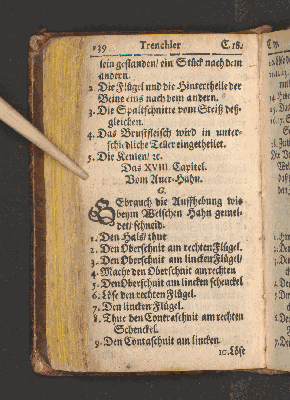 139 Trenchier C. 18.
lein gestanden / ein Stück nach dem
andern.
2. Die Flügel und die Hintertheile der
Beine eins nach dem andern.
3. Die Spaltschnitte vom Steiß deß-
gleichen.
4. Das Brustfleisch wird in unter-
schiedliche Teller eingetheilet.
5. Die Keulen / ꝛc.
Das XVIII. Capitel.
Vom Auer-Hahn.
G.
GEbrauch die Auffhebung wie
beym Welschen Hahn gemel-
det / schneid.
1. Den Hals / thut
2. Den Oberschnit am rechten Flügel.
3. Den Oberschnit am lincken Flügel /
4. Mache den Oberschnit am rechten
5. Den Oberschnit am lincken schenckel
6. Löse den rechten Flügel.
7. Den lincken Flügel.
8. Thue den Contraschnit am rechten
Schenckel.
9. Den Contaschnit am lincken
10. Löse